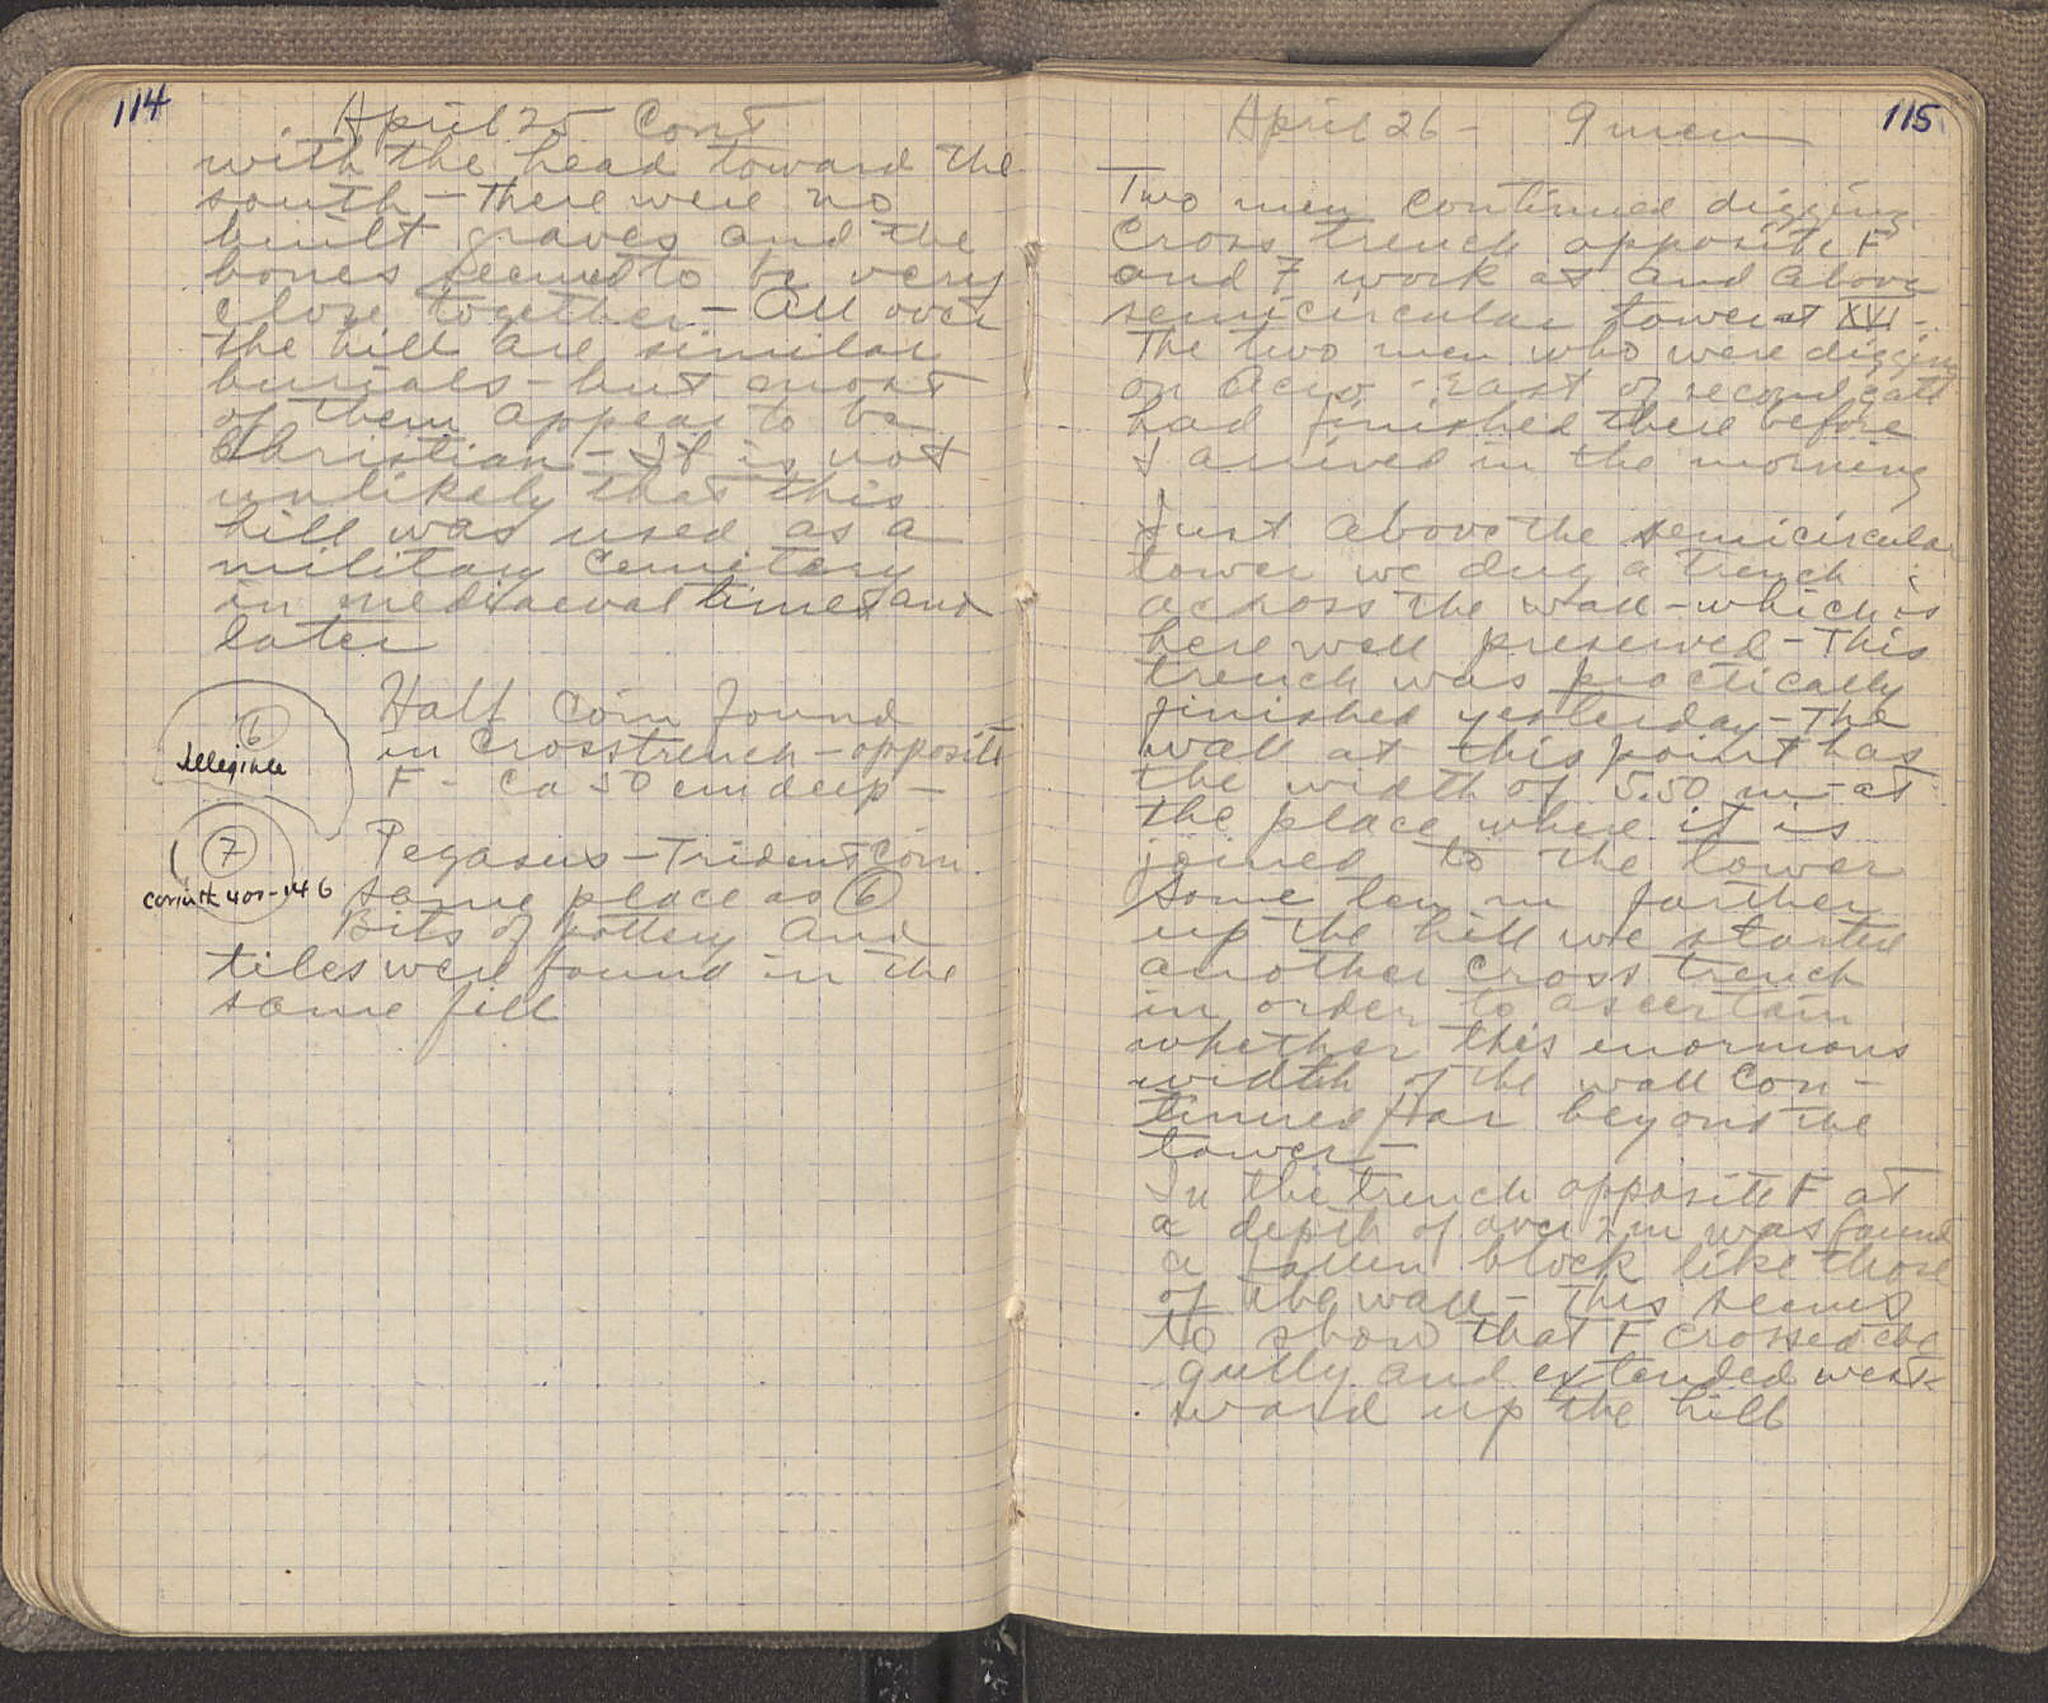 114
April 25 Cont
with the head toward the
south - there were no
built graves and the
bones seemed to be very
close together. - All over
the hill are similar
burials - but most
of them appear to be
Christian - It is not
unlikely that this
hill was used as a
military cemitary
in mediaeval times and
later
6
illegible
Half Coin found
in Crosstrench - opposite
F - Ca 50 cm deep -
7
Corinth 400-146
Pegasus - Trident Coin
same place as 6
Bits of pottery and
tiles were found in the
same fill
115
April 26 - 9 men
Two men continued digging
Cross trench opposite F
and 7 work at and above
semicircular tower at XVI -
The two men who were digging
on Acro - East of second gate
had finished there before
I arrived in the morning
Just above the semicircular
tower we dug a trench
across the wall - which is
here well preserved - This
trench was practically
finished yesterday - The
wall at this point has
the width of 5.50 m - at
the place where it is
joined to the tower
Some ten m farther
up the hill we started
another cross trench
in order to ascertain
whether this enormous
width of the wall con-
tinued far beyond the
tower -
In the trench opposite F at
a depth of over 2 m was found
a fallen block like those
of the wall - This seems
to show that F crossed the
gully and extended west-
ward up the hill